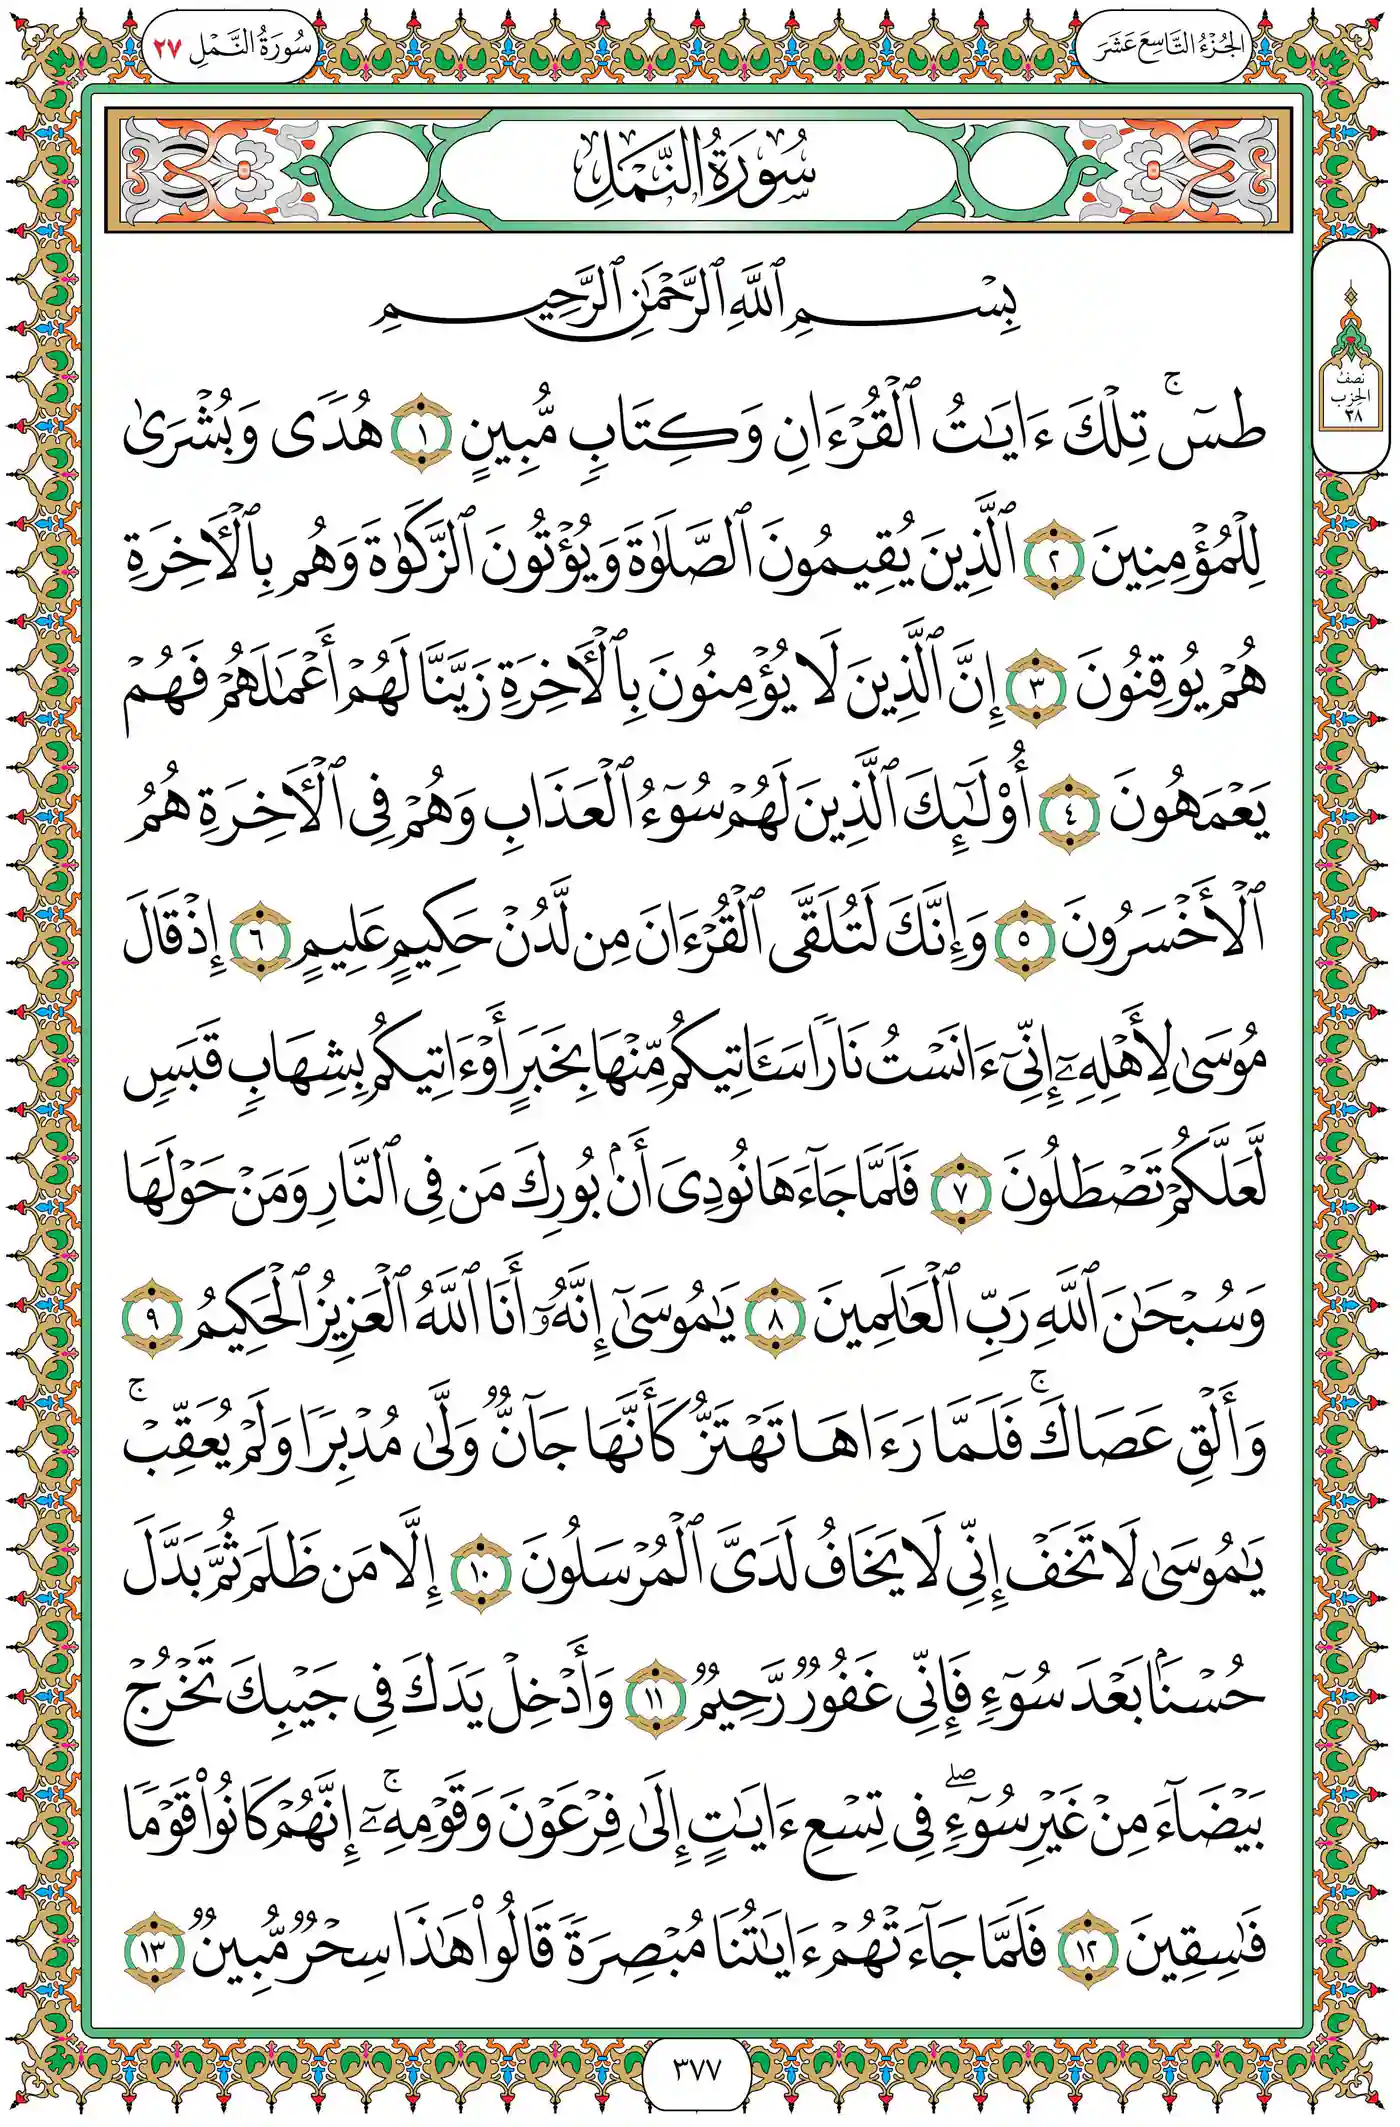 الجُزْءُ التَّاسِعَ عَشَرَ
سُورَةُ النَّمْلِ ٢٧
سُورَةُ النَّمْلِ
بِسْمِ ٱللَّهِ ٱلرَّحْمَٰنِ ٱلرَّحِيمِ
نصف
الحزب
٣٨
طسٓۚ تِلْكَ ءَايَٰتُ ٱلْقُرْءَانِ وَكِتَابٍ مُّبِينٍ ١ هُدًى وَبُشْرَىٰ
لِلْمُؤْمِنِينَ ٢ ٱلَّذِينَ يُقِيمُونَ ٱلصَّلَوٰةَ وَيُؤْتُونَ ٱلزَّكَوٰةَ وَهُم بِٱلْأَخِرَةِ
هُمْ يُوقِنُونَ ٣ إِنَّ ٱلَّذِينَ لَا يُؤْمِنُونَ بِٱلْأَخِرَةِ زَيَّنَّا لَهُمْ أَعْمَٰلَهُمْ فَهُمْ
يَعْمَهُونَ ٤ أُوْلَٰٓئِكَ ٱلَّذِينَ لَهُمْ سُوٓءُ ٱلْعَذَابِ وَهُمْ فِى ٱلْأَخِرَةِ هُمُ
ٱلْأَخْسَرُونَ ٥ وَإِنَّكَ لَتُلَقَّى ٱلْقُرْءَانَ مِن لَّدُنْ حَكِيمٍ عَلِيمٍ ٦ إِذْ قَالَ
مُوسَىٰ لِأَهْلِهِۦٓ إِنِّىٓ ءَانَسْتُ نَارًا سَـَٔاتِيكُم مِّنْهَا بِخَبَرٍ أَوْ ءَاتِيكُم بِشِهَابٍ قَبَسٍ
لَّعَلَّكُمْ تَصْطَلُونَ ٧ فَلَمَّا جَآءَهَا نُودِىَ أَنۢ بُورِكَ مَن فِى ٱلنَّارِ وَمَنْ حَوْلَهَا
وَسُبْحَٰنَ ٱللَّهِ رَبِّ ٱلْعَٰلَمِينَ ٨ يَٰمُوسَىٰٓ إِنَّهُۥٓ أَنَا ٱللَّهُ ٱلْعَزِيزُ ٱلْحَكِيمُ ٩
وَأَلْقِ عَصَاكَۚ فَلَمَّا رَءَاهَا تَهْتَزُّ كَأَنَّهَا جَآنٌّ وَلَّىٰ مُدْبِرًا وَلَمْ يُعَقِّبْۚ
يَٰمُوسَىٰ لَا تَخَفْ إِنِّى لَا يَخَافُ لَدَىَّ ٱلْمُرْسَلُونَ ١٠ إِلَّا مَن ظَلَمَ ثُمَّ بَدَّلَ
حُسْنًۢا بَعْدَ سُوٓءٍ فَإِنِّى غَفُورٌ رَّحِيمٌ ١١ وَأَدْخِلْ يَدَكَ فِى جَيْبِكَ تَخْرُجْ
بَيْضَآءَ مِنْ غَيْرِ سُوٓءٍۖ فِى تِسْعِ ءَايَٰتٍ إِلَىٰ فِرْعَوْنَ وَقَوْمِهِۦٓۚ إِنَّهُمْ كَانُوا۟ قَوْمًا
فَٰسِقِينَ ١٢ فَلَمَّا جَآءَتْهُمْ ءَايَٰتُنَا مُبْصِرَةً قَالُوا۟ هَٰذَا سِحْرٌ مُّبِينٌ ١٣
٣٧٧